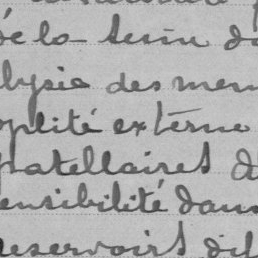 de la
lysie des mem
oplité externe
patellaires d
ensibilité dans
reservoirs dis